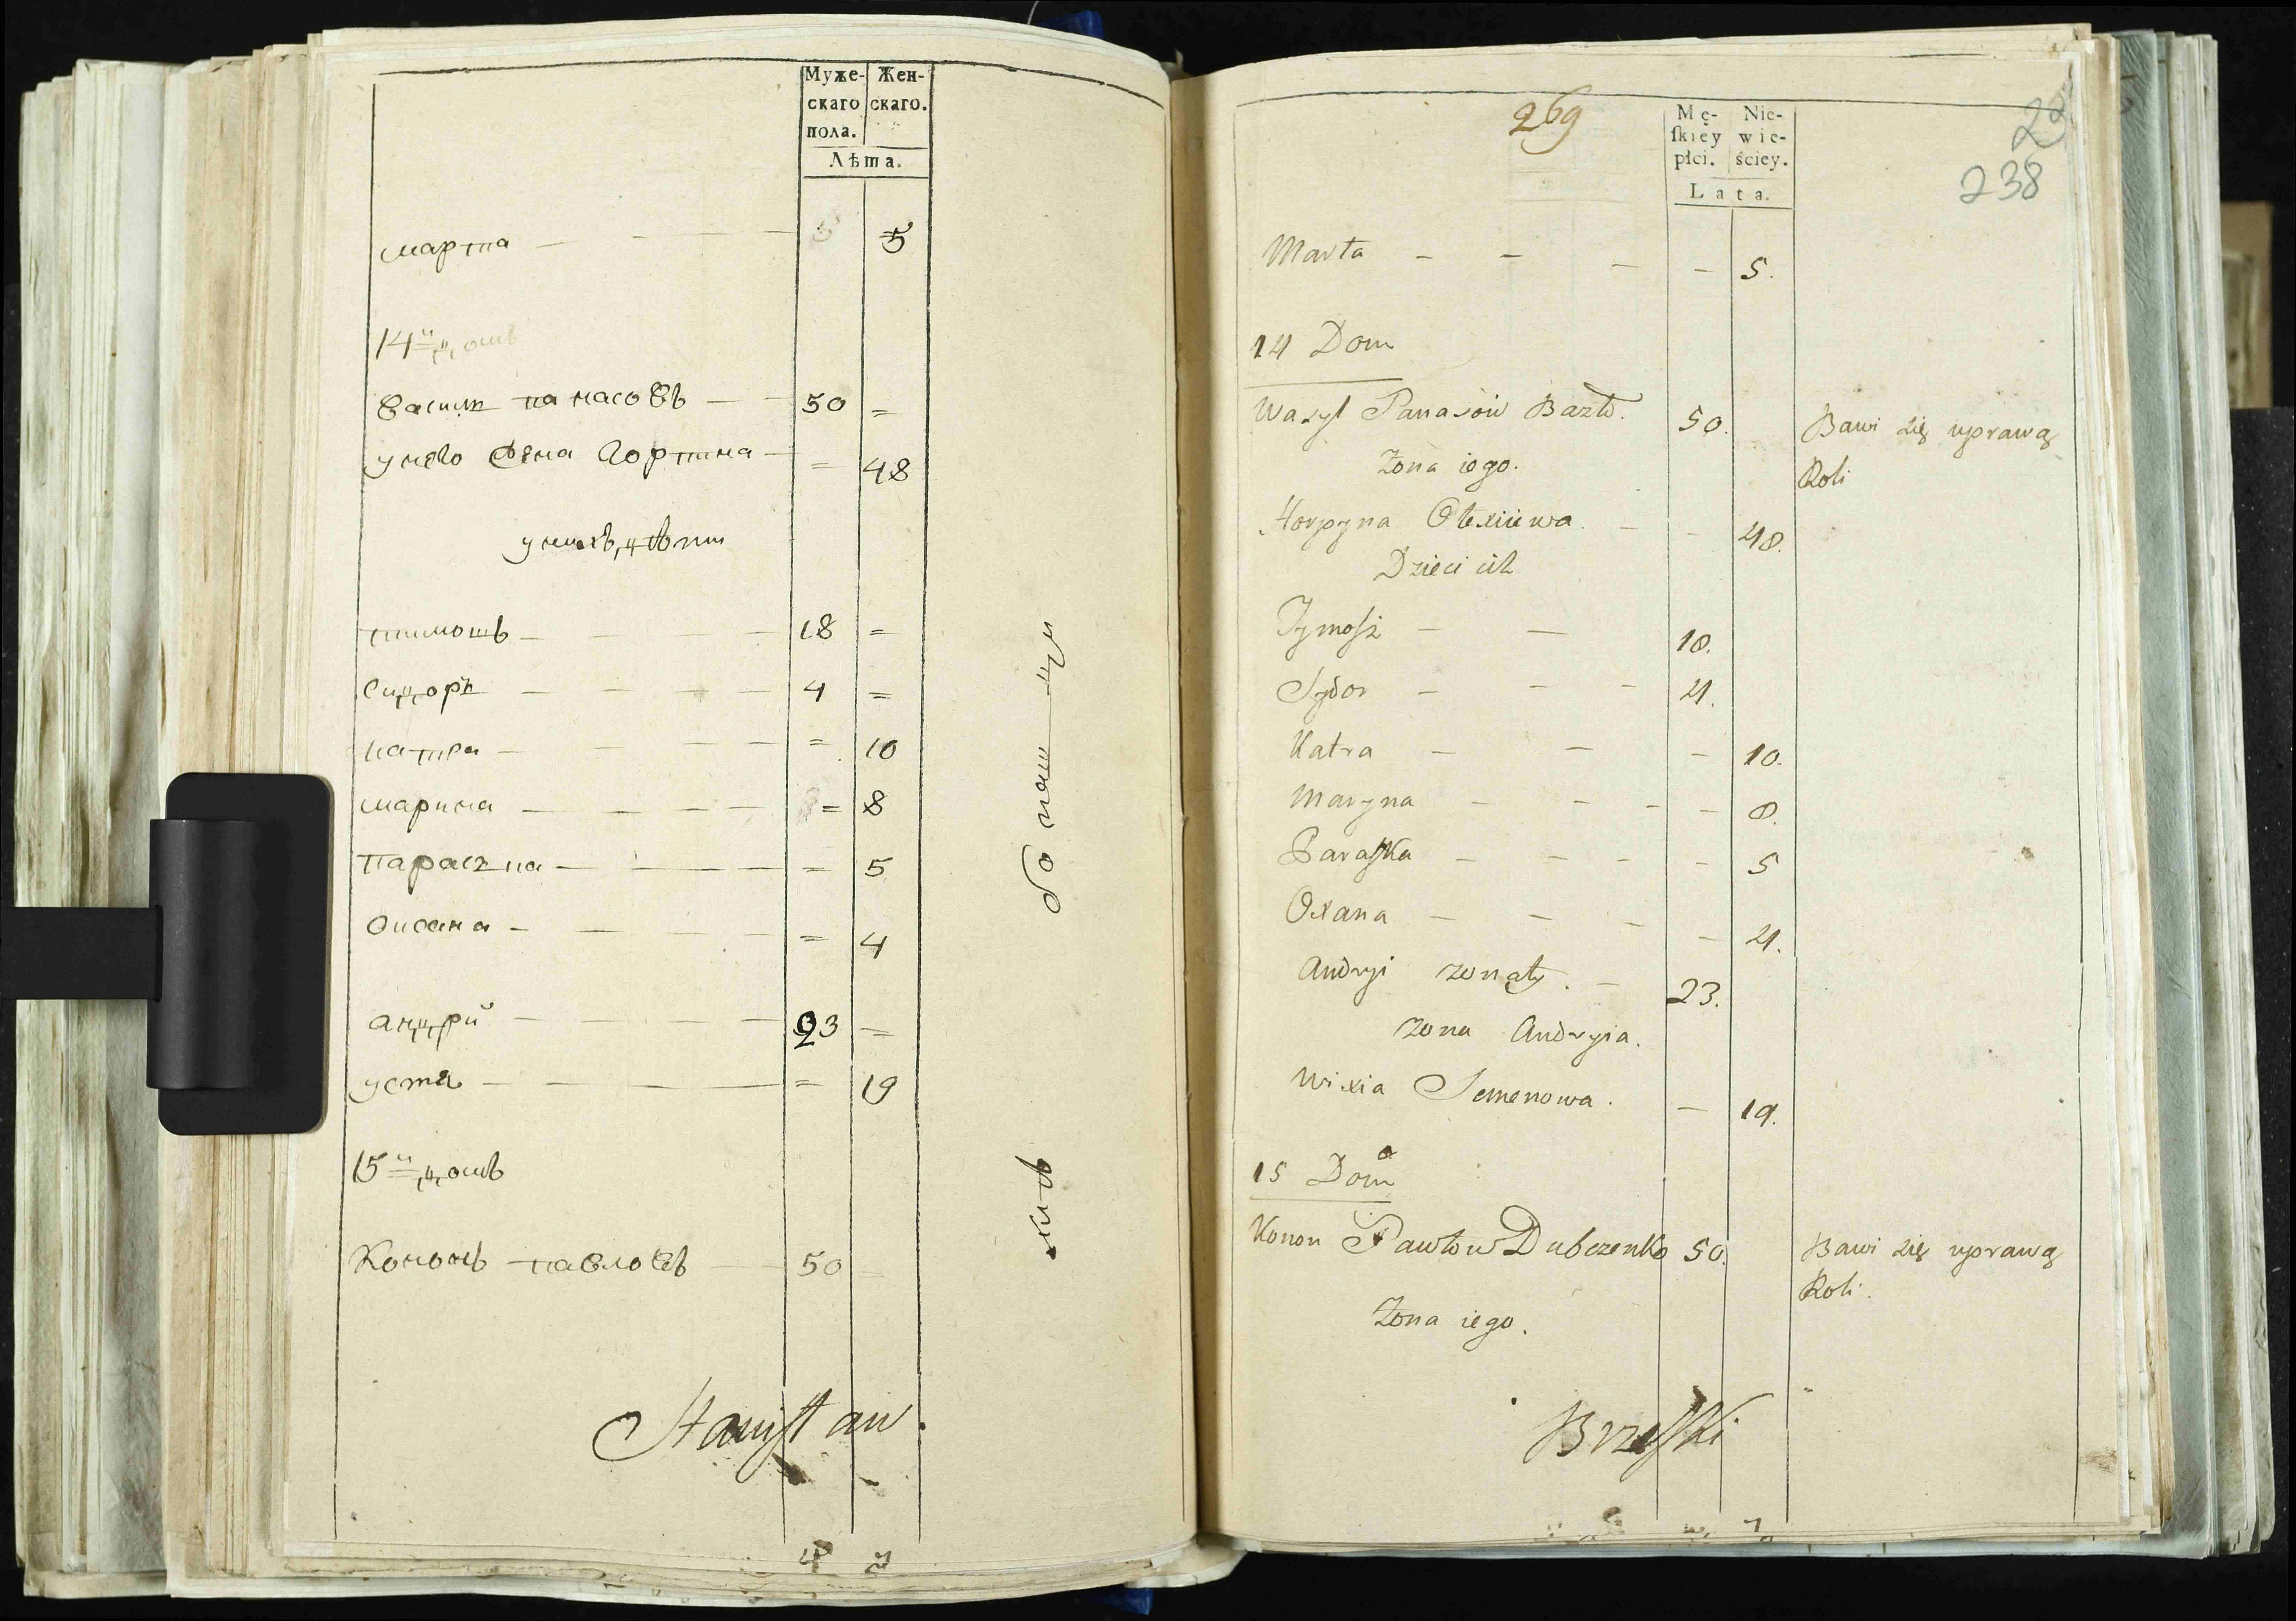 Муже- Жен-
скаго скаго.
пола.
Лѣта.
марта 5
14й домъ
Василь панасовъ 50 =
унего жена Горпина = 48
унихъ дѣти
тимошъ 18 =
Сидоръ 4 =
катра = 10
марина = 8
параска = 5
Оксана = 4
андрій 23 =
устя = 19
15й домъ
Кононъ павловъ 50
Stanisław
4 7
269
238
Mę- Nie-
ſkiey wie-
płci. ściey.
Lata.
Marta - - - - 5.
14 Dom
Wasyl Panasów 50. Bawi się uprawą
Żona iego. Roli
Horpyna Olexiiewa. - - 48.
Dzieci ich
Tymosz - - 18.
Sydor - - - 4.
Katra - - - 10.
Maryna - - - - 8.
Paraska - - - - 5
Oxana - - - - 4.
Andryi żonaty. - 23.
Żona Andryia.
Wixia Semenowa. - 19.
15 Dom
Konon Pawłow Dubczenko 50. Bawi się uprawą
Roli.
Żona iego.
Brzeski